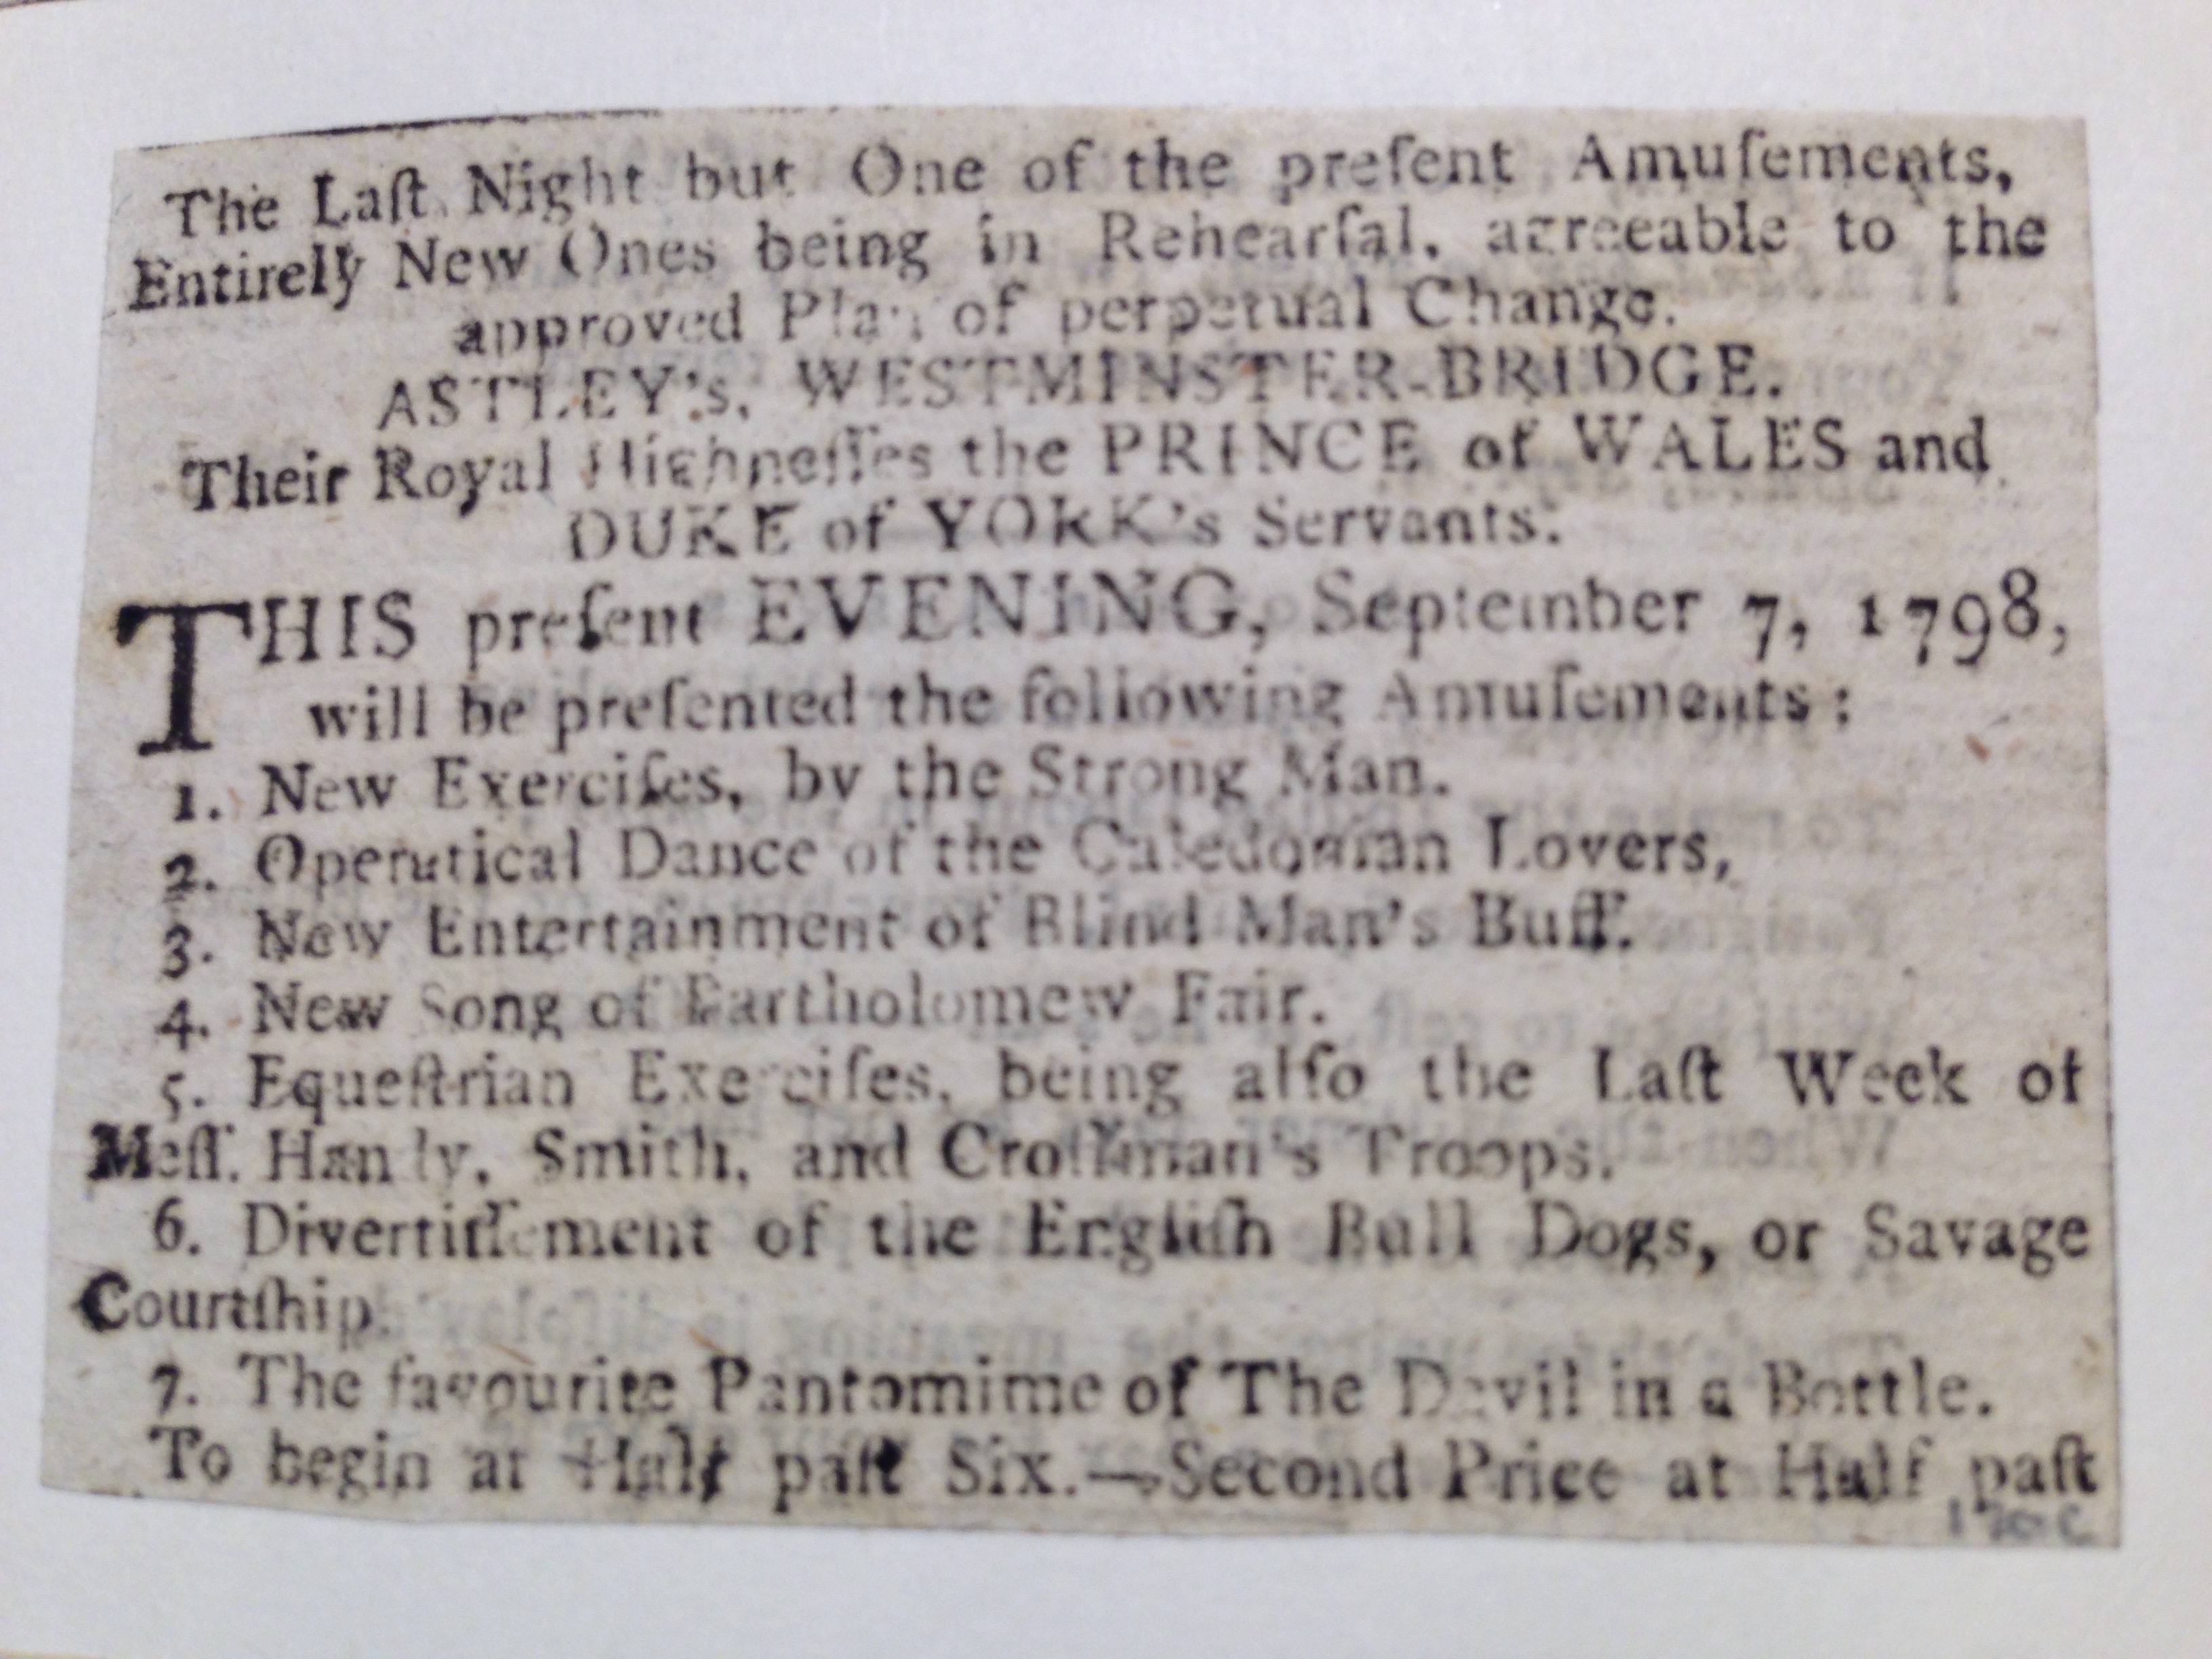 The Laſt Night but One of the preſent Amuſements,
Entirely New Ones being in Rehearſal, agreeable to the
approved Plan of perpetual Change.
ASTLEY's, WESTMINSTER-BRIDGE.
Their Royal Highneſſes the PRINCE of WALES and
DUKE of YORK's Servants.
THIS preſent EVENING, September 7, 1798,
will be preſented the following Amuſements:
1. New Exerciſes, by the Strong Man.
2. Operatical Dance of the Caledonian Lovers,
3. New Entertainment of Blind Man's Buff.
4. New Song of Bartholomew Fair.
5. Equeſtrian Exerciſes, being alſo the Laſt Week of
Meſſ. Handy, Smith, and Croſſman's Troops.
6. Divertiſſement of the Engliſh Bull Dogs, or Savage
Courtſhip.
7. The favourite Pantomime of The Devil in a Bottle.
To begin at Half paſt Six.—Second Price at Half paſt